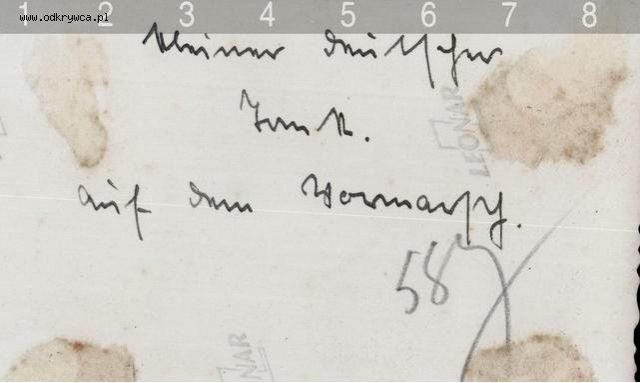 1 2 3 4 5 6 7 8
www.odkrywca.pl
Kleiner deutscher
Tank.
auf dem Vormarsch.
LEONAR
58
NAR